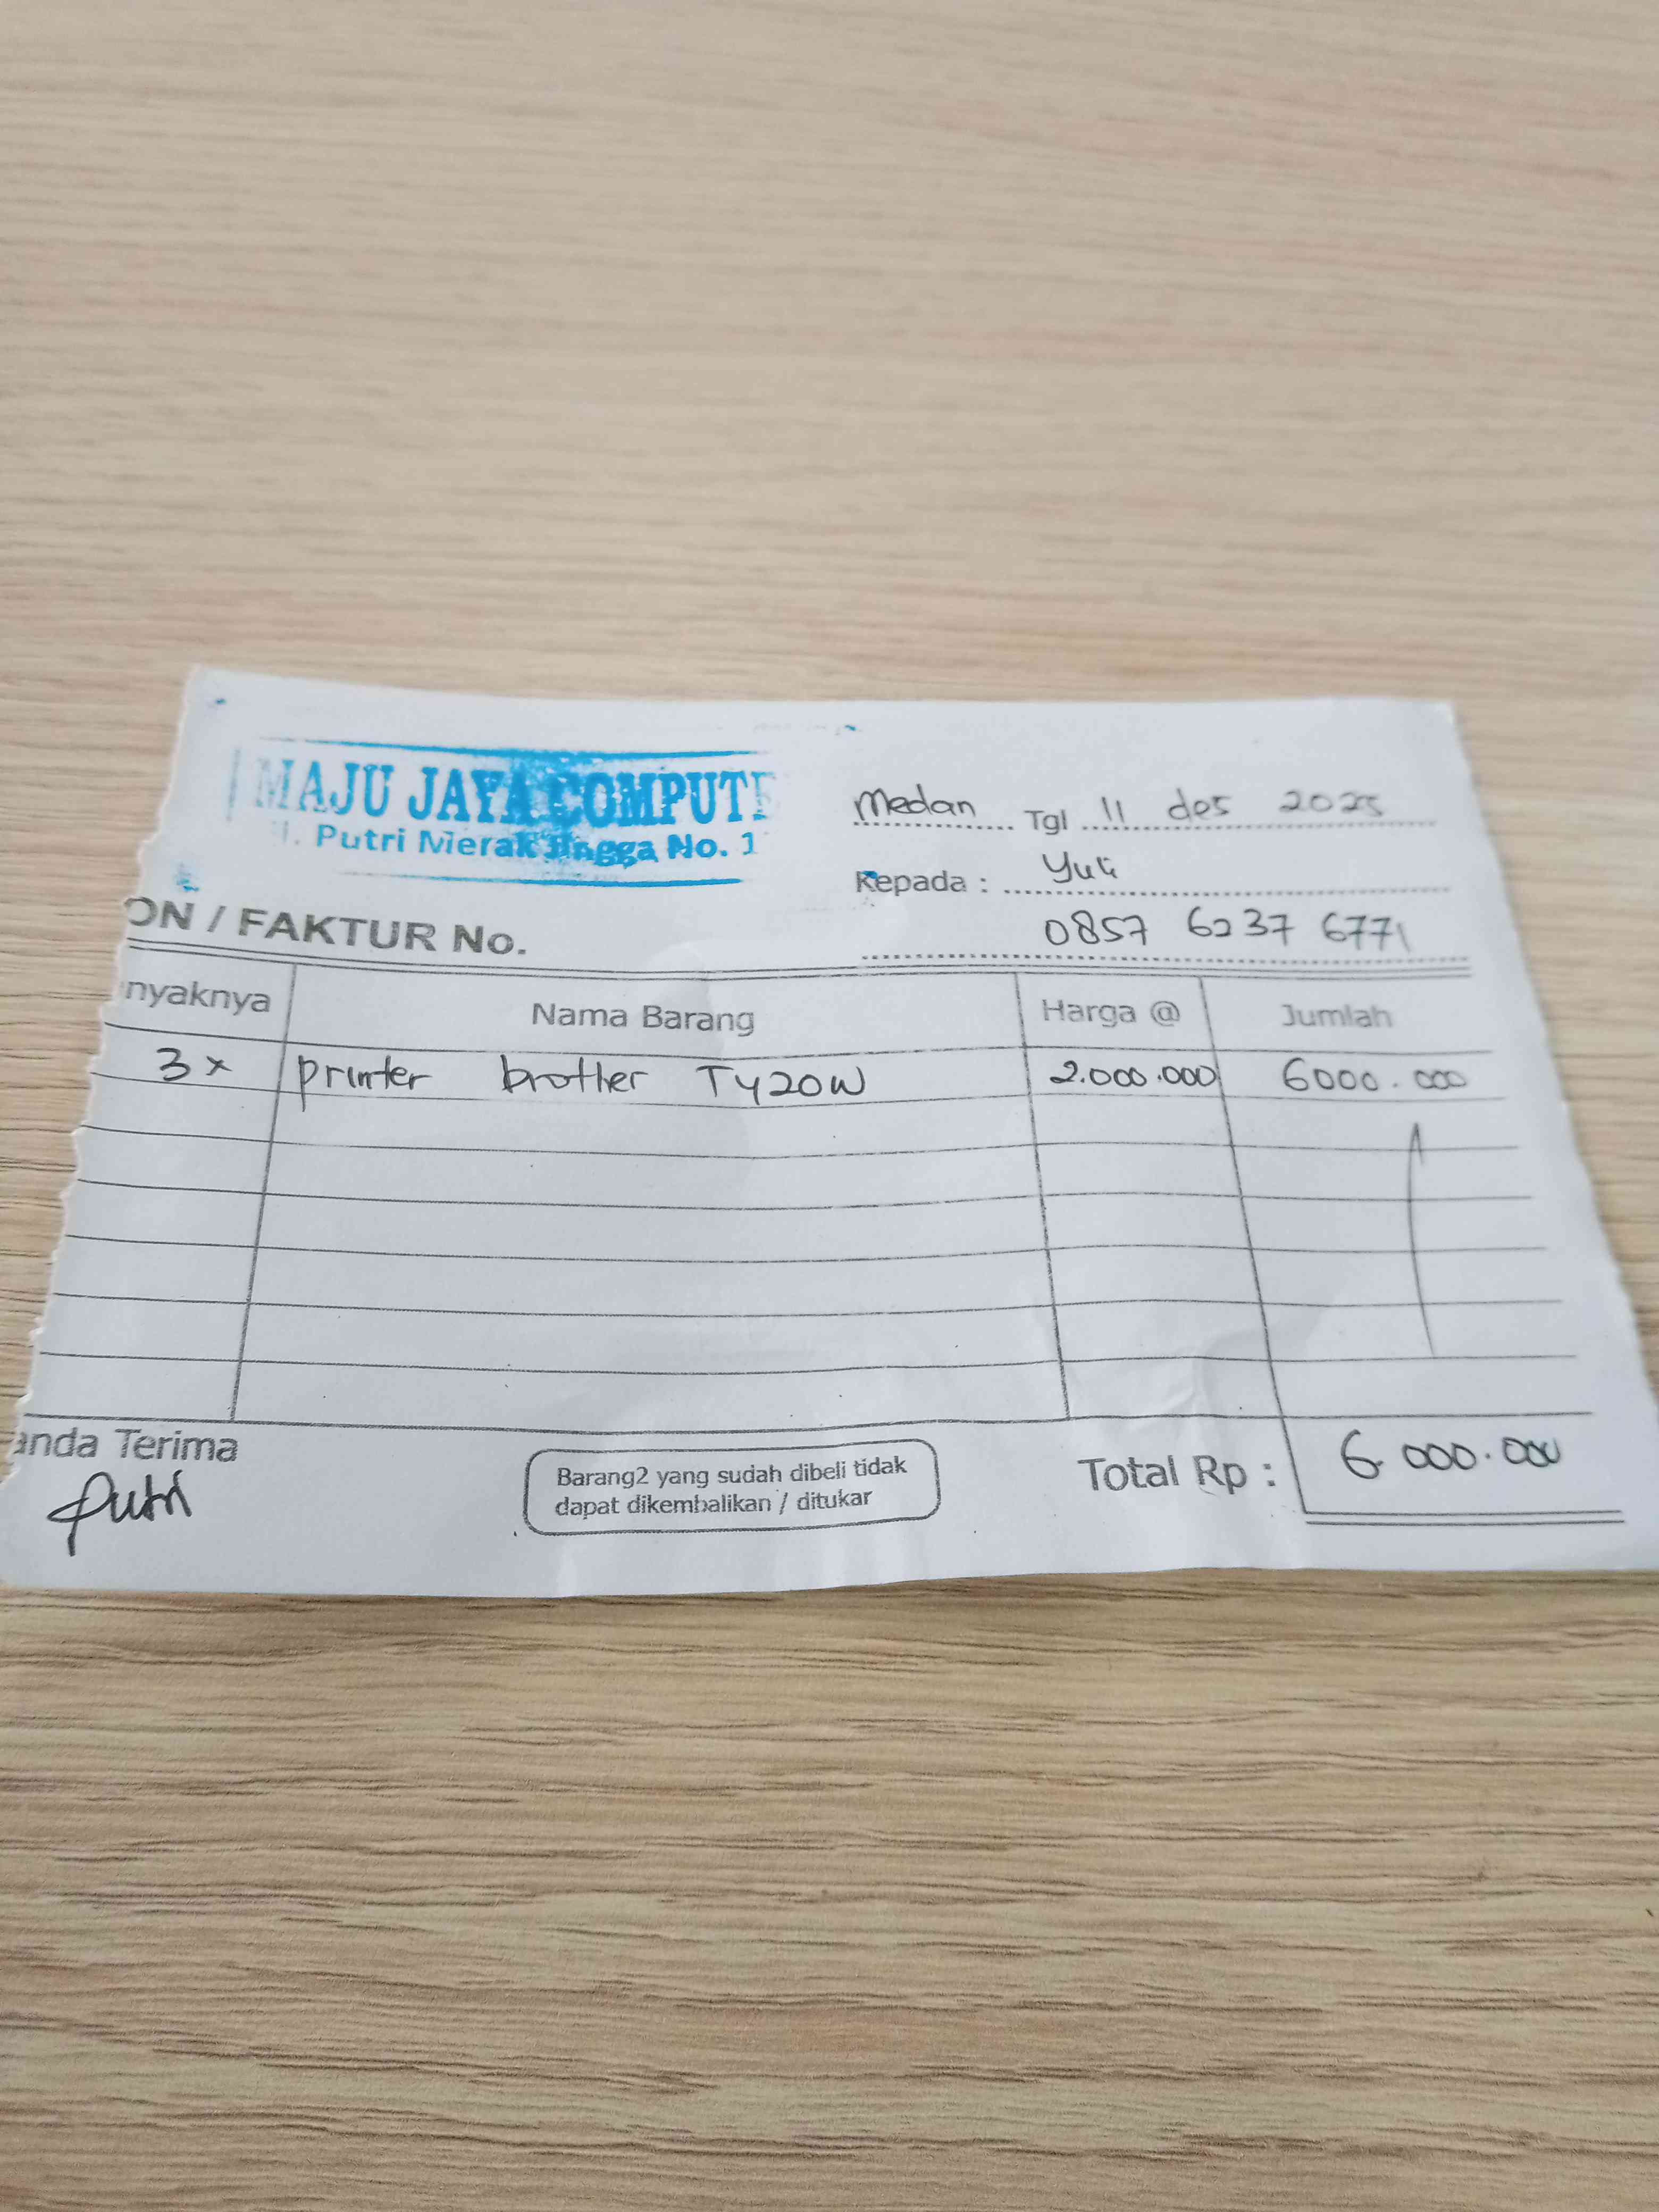 MAJU JAYA COMPUTE
Putri Merak Jingga No. 1
Medan Tgl 11 des 2025
Kepada : Yuli
0857 6237 6771
ON / FAKTUR No.
nyaknya Nama Barang Harga @ Jumlah
3x printer brother T420W 2.000.000 6000.000
anda Terima
Putri
Barang2 yang sudah dibeli tidak
dapat dikembalikan / ditukar
Total Rp : 6.000.000